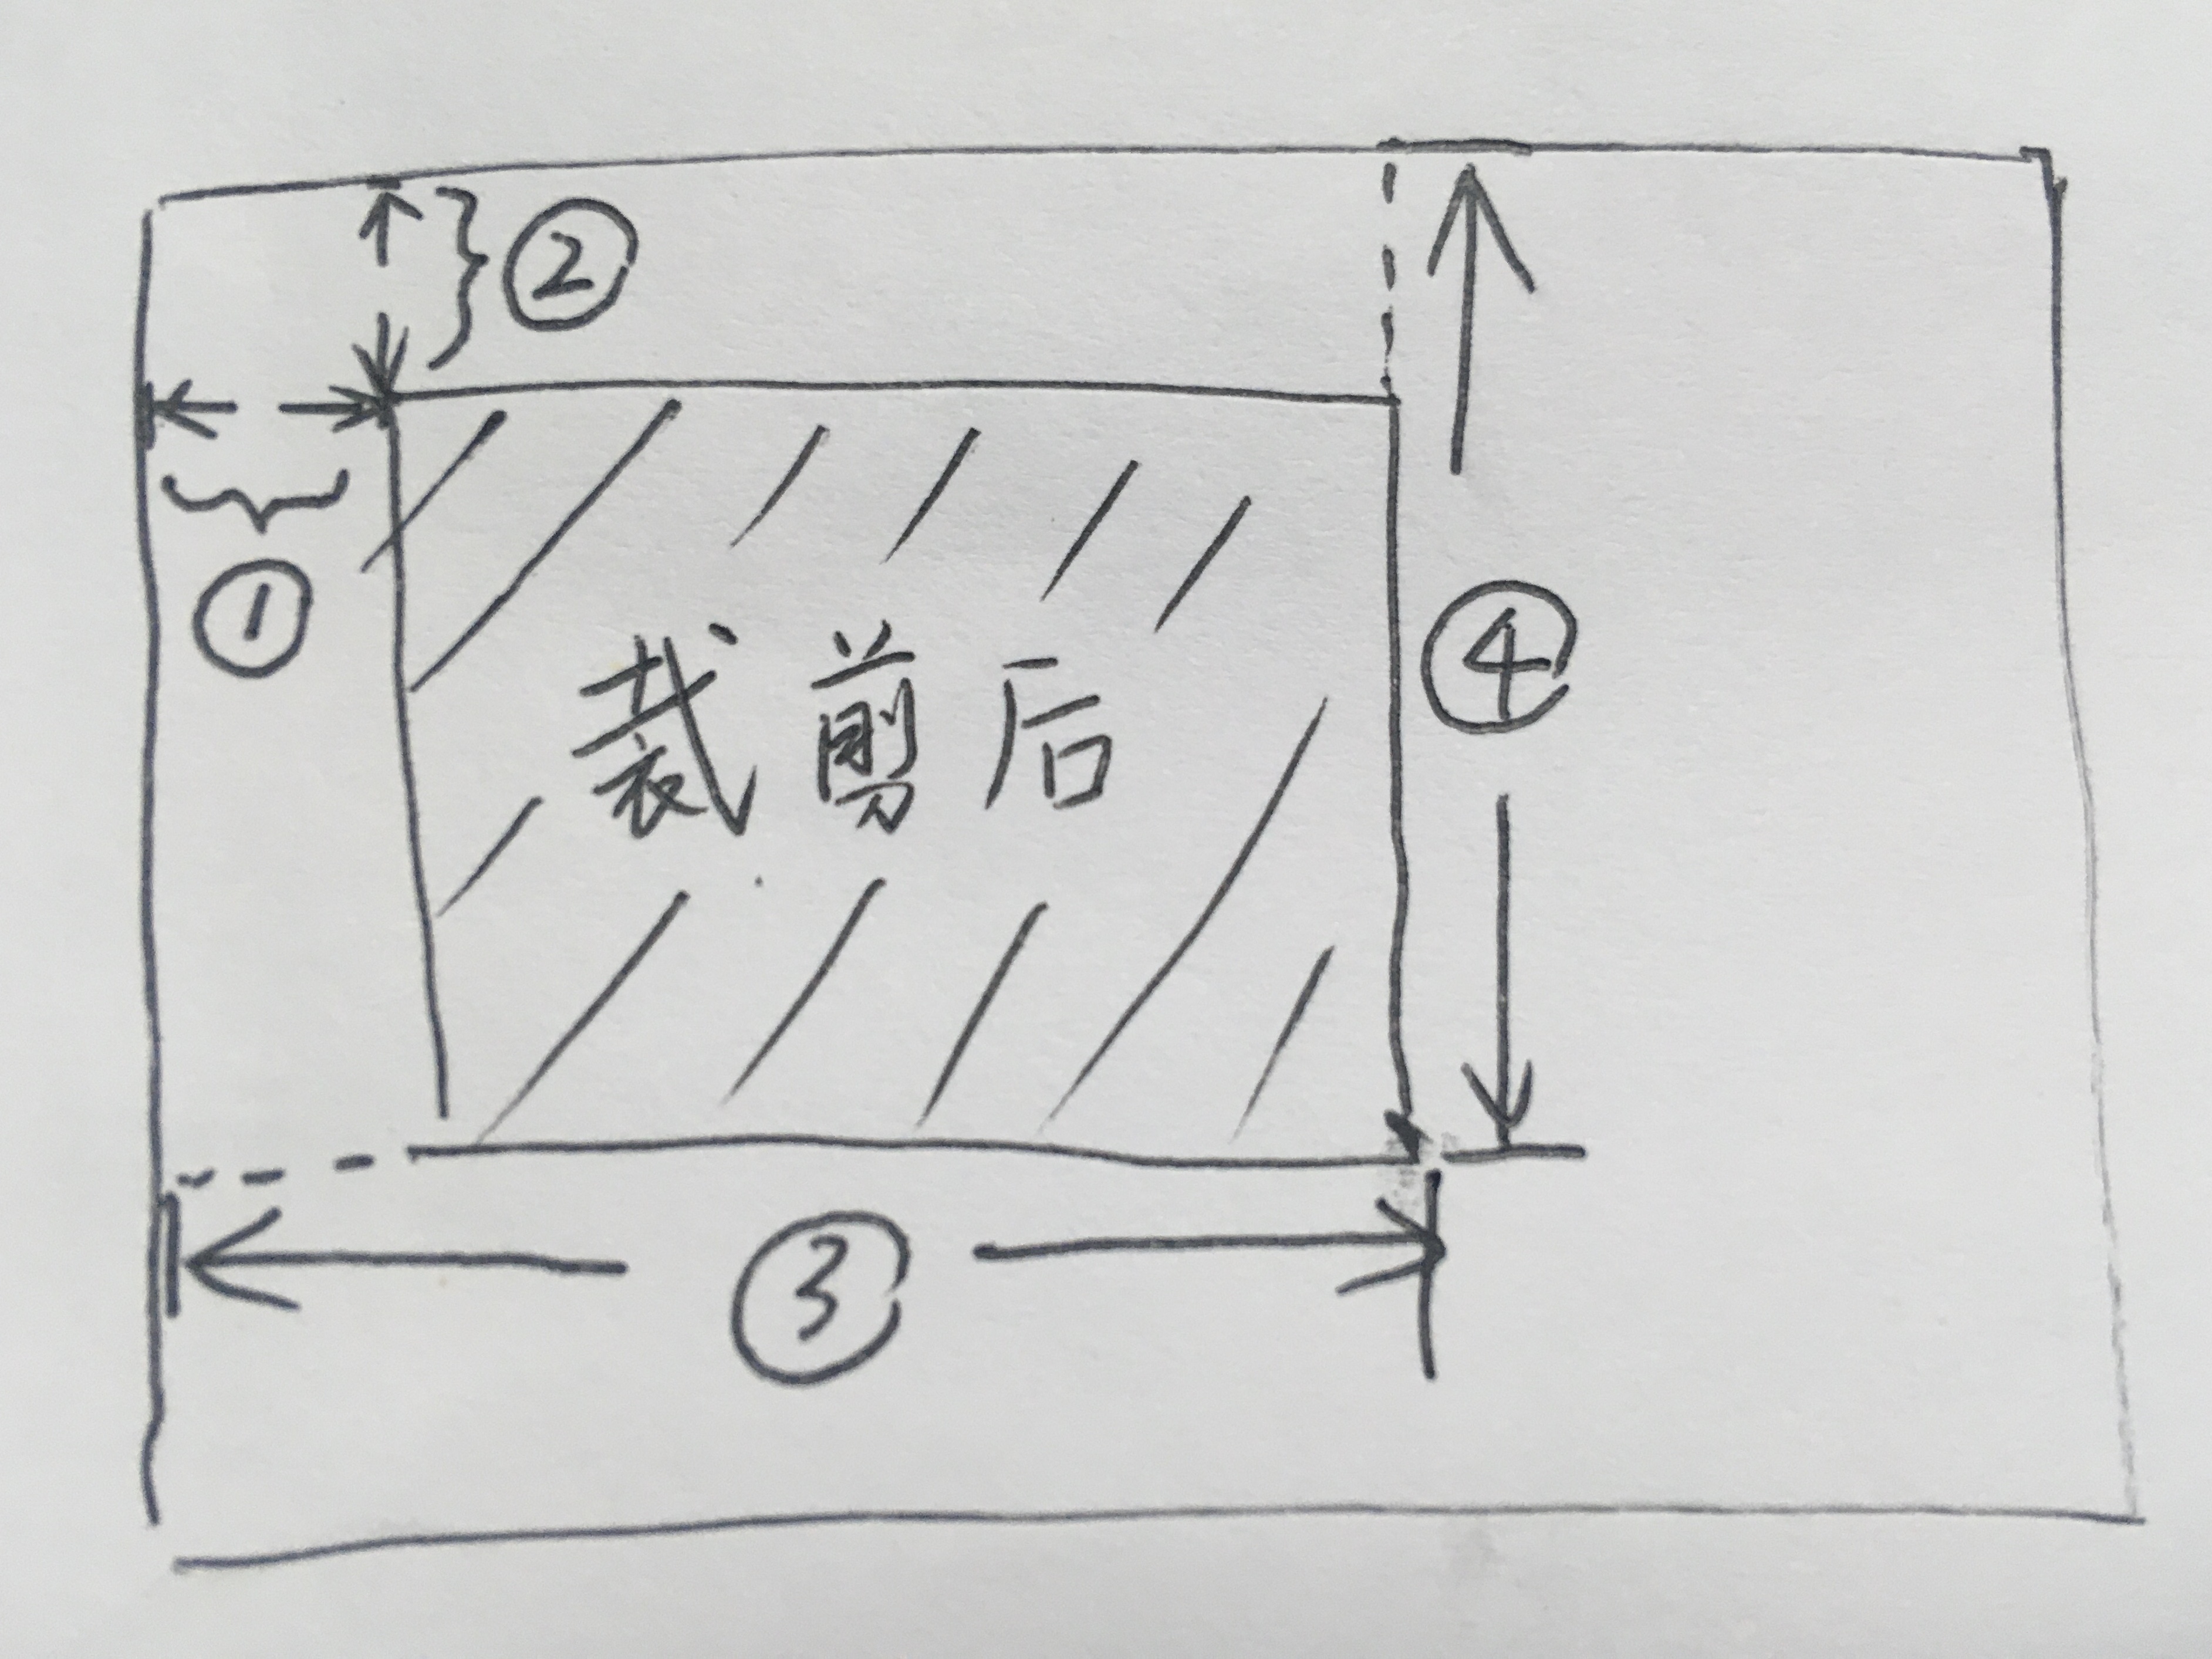 ②
①
裁剪后
④
③